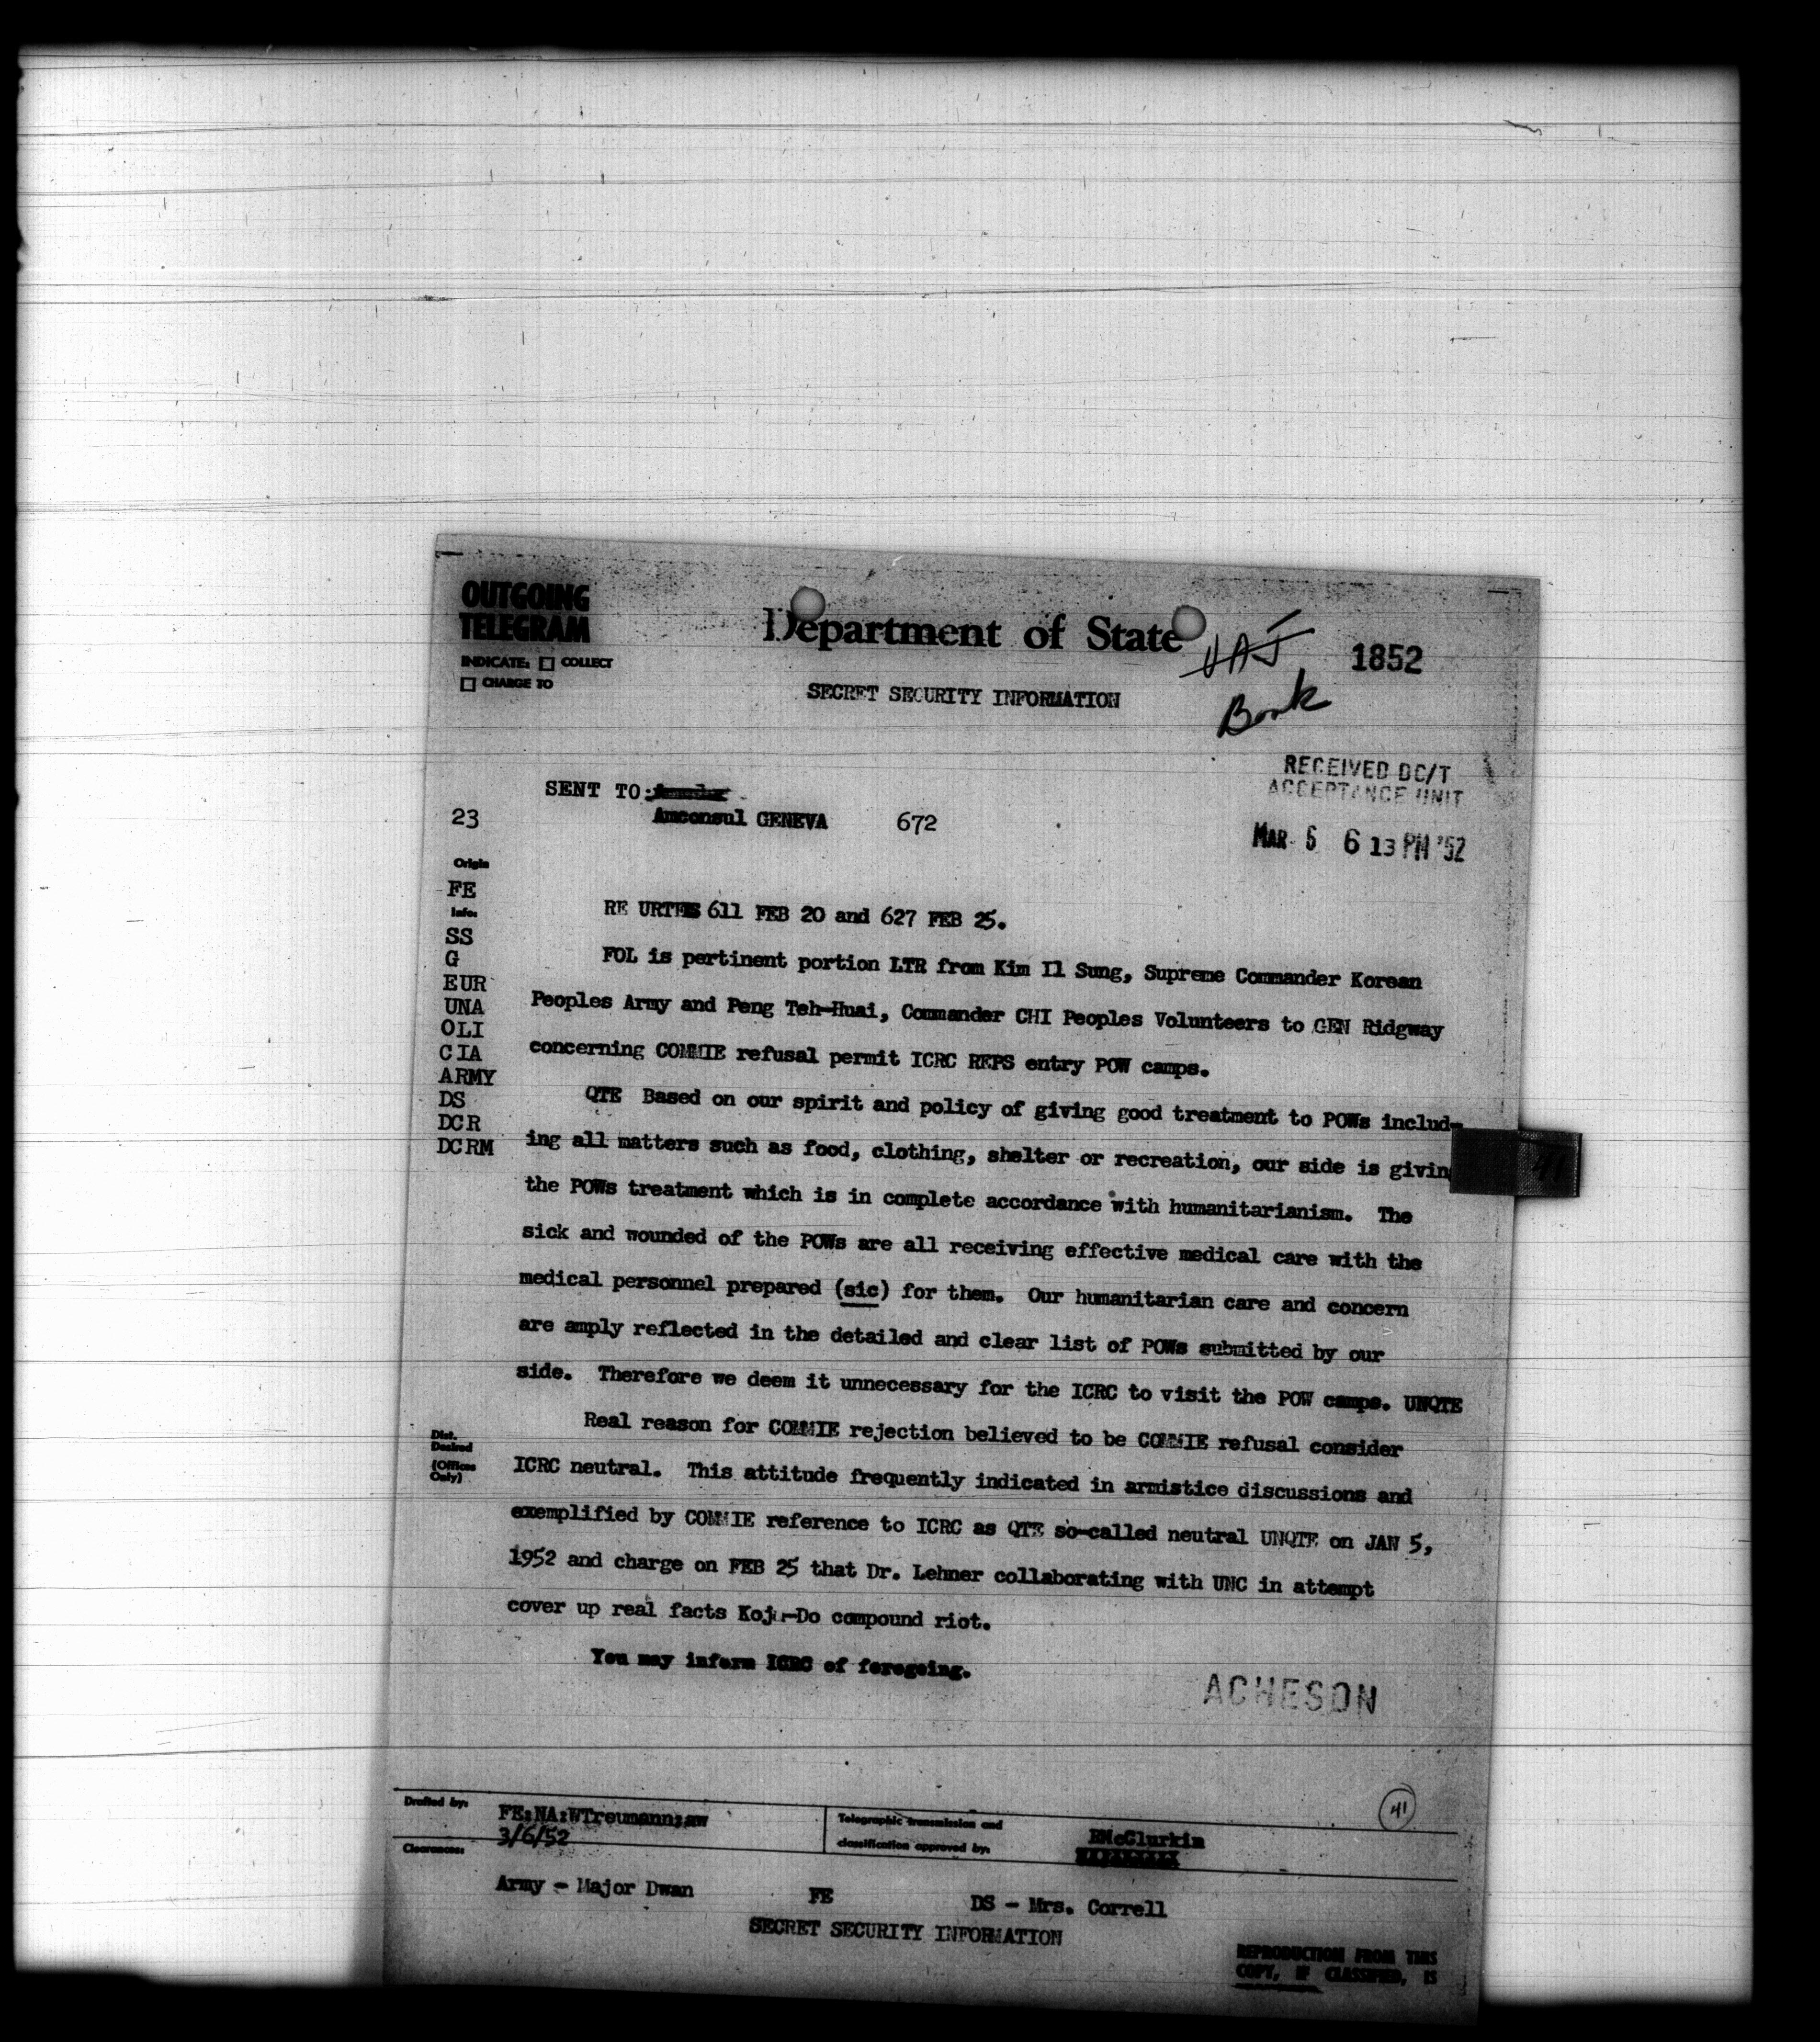 OUTGOING
TELEGRAM
INDICATE: ☐ COLLECT
☐ CHARGE TO
Department of State
1852
SECRET SECURITY INFORMATION
Book
RECEIVED DC/T
ACCEPTANCE UNIT
MAR 6 6 13 PM '52
SENT TO:
Amconsul GENEVA 672
23
Origin
FE
Info:
SS
G
EUR
UNA
OLI
CIA
ARMY
DS
DCR
DCRM
RE URTELS 611 FEB 20 and 627 FEB 25.
FOL is pertinent portion LTR from Kim Il Sung, Supreme Commander Korean
Peoples Army and Peng Teh-Huai, Commander CHI Peoples Volunteers to GEN Ridgway
concerning COMMIE refusal permit ICRC REPS entry POW camps.
QTE Based on our spirit and policy of giving good treatment to POWs includ-
ing all matters such as food, clothing, shelter or recreation, our side is giving
the POWs treatment which is in complete accordance with humanitarianism. The
sick and wounded of the POWs are all receiving effective medical care with the
medical personnel prepared (sic) for them. Our humanitarian care and concern
are amply reflected in the detailed and clear list of POWs submitted by our
side. Therefore we deem it unnecessary for the ICRC to visit the POW camps. UNQTE
Real reason for COMMIE rejection believed to be COMMIE refusal consider
ICRC neutral. This attitude frequently indicated in armistice discussions and
exemplified by COMMIE reference to ICRC as QTE so-called neutral UNQTE on JAN 5,
1952 and charge on FEB 25 that Dr. Lehner collaborating with UNC in attempt
cover up real facts Koje-Do compound riot.
You may inform ICRC of foregoing.
Dist.
Desired
(Offices
Only)
ACHESON
41
41
Drafted by:
FE:NA:WTreumann:aw
3/6/52
Telegraphic transmission and
classification approved by:
RMcClurkin
Clearances:
Army - Major Dwan FE DS - Mrs. Correll
SECRET SECURITY INFORMATION
REPRODUCTION FROM THIS
COPY, IF CLASSIFIED, IS